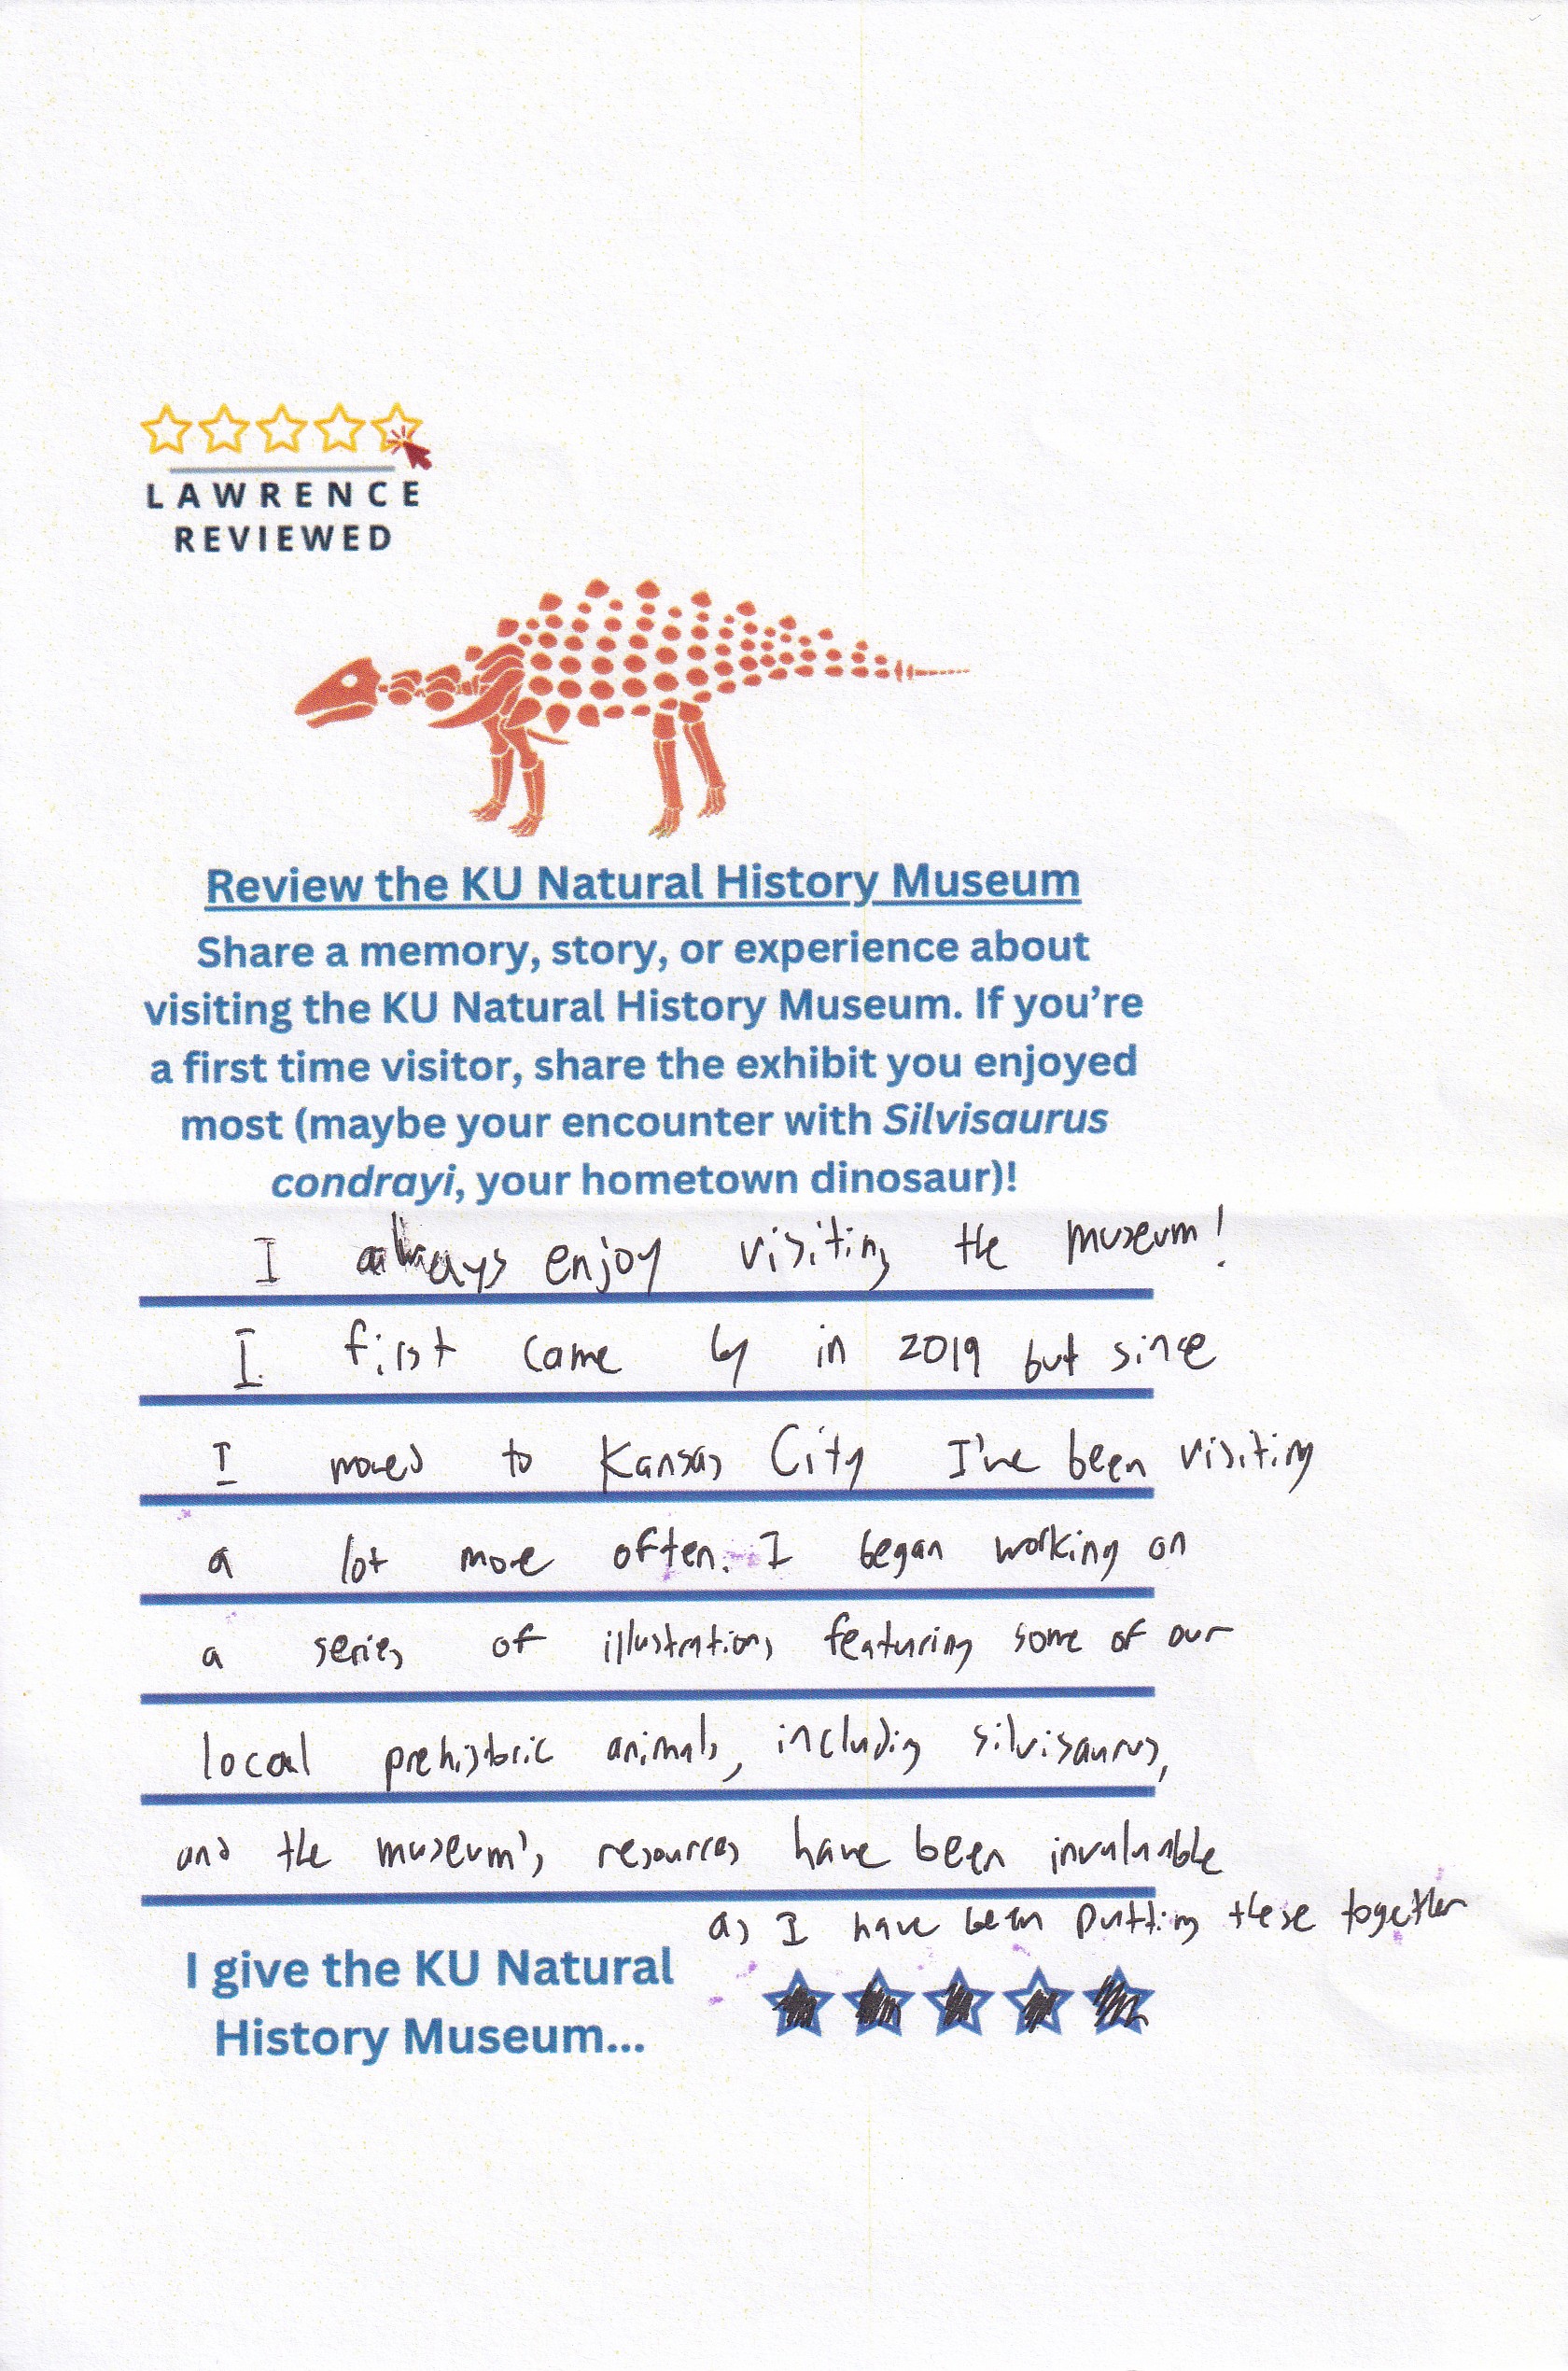 LAWRENCE
REVIEWED
Review the KU Natural History Museum
Share a memory, story, or experience about
visiting the KU Natural History Museum. If you're
a first time visitor, share the exhibit you enjoyed
most (maybe your encounter with Silvisaurus
condrayi, your hometown dinosaur)!
I always enjoy visiting the museum!
I first came by in 2019 but since
I moved to Kansas City I've been visiting
a lot more often. I began working on
a series of illustrations featuring some of our
local prehistoric animals, including silvisaurus,
and the museum's resources have been invaluable
as I have been putting these together
I give the KU Natural
History Museum...